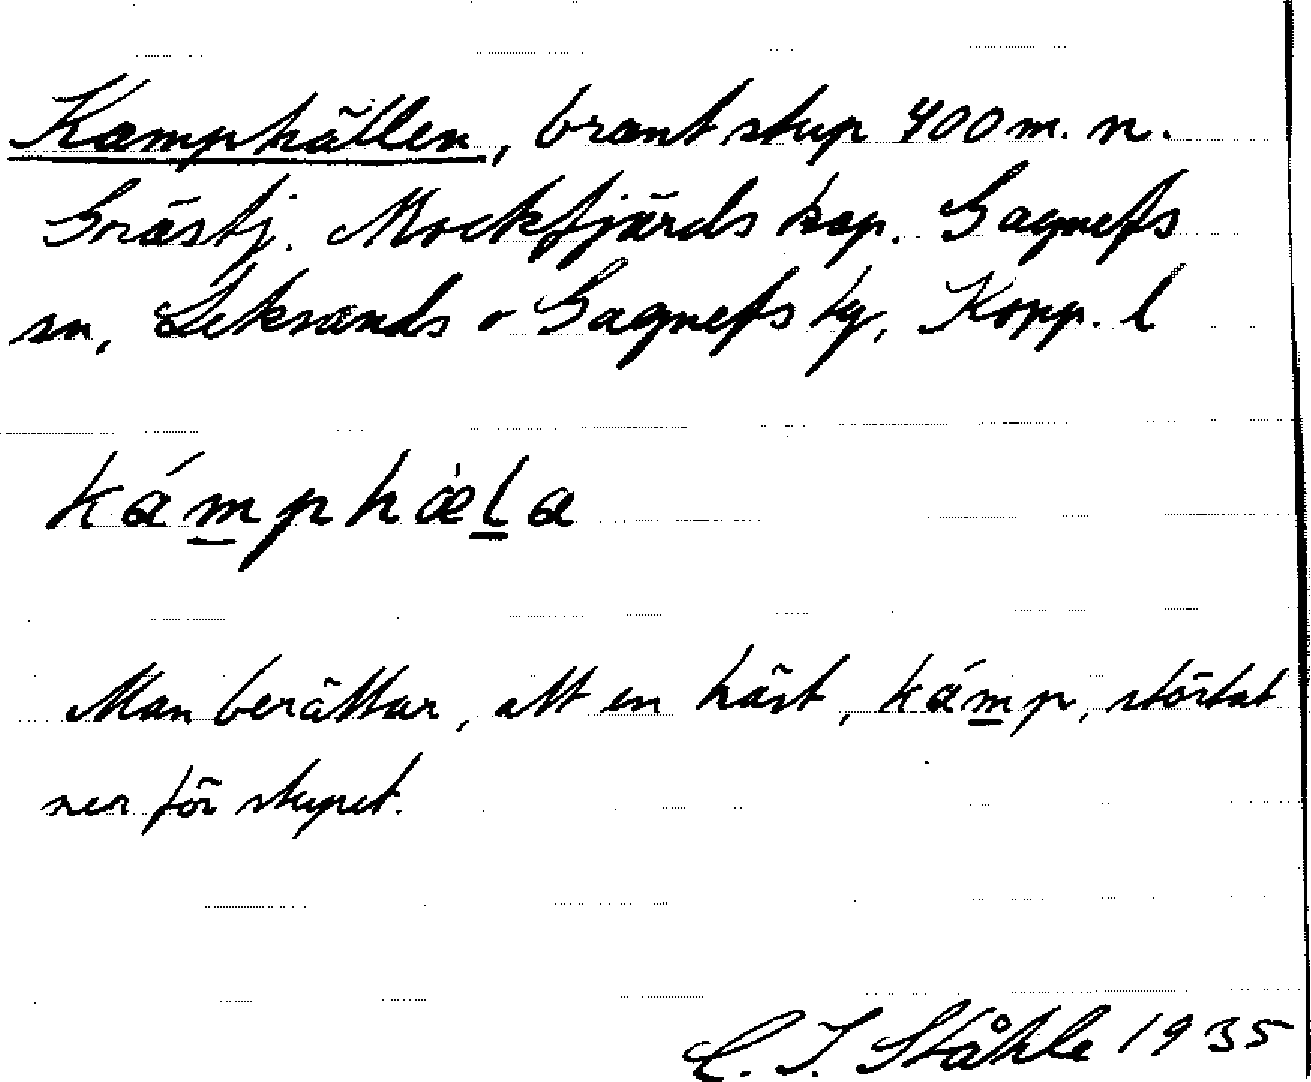 Kamphällen, brant stup 400 m. n.
Grästj. Mockfjärds kap. Gagnefs
sn, Leksands o Gagnefs tg, Kopp. l
kámphæ̀la
Man berättar, att en häst, kámp, störtat
ner för stupet.
C. I. Ståhle 1935